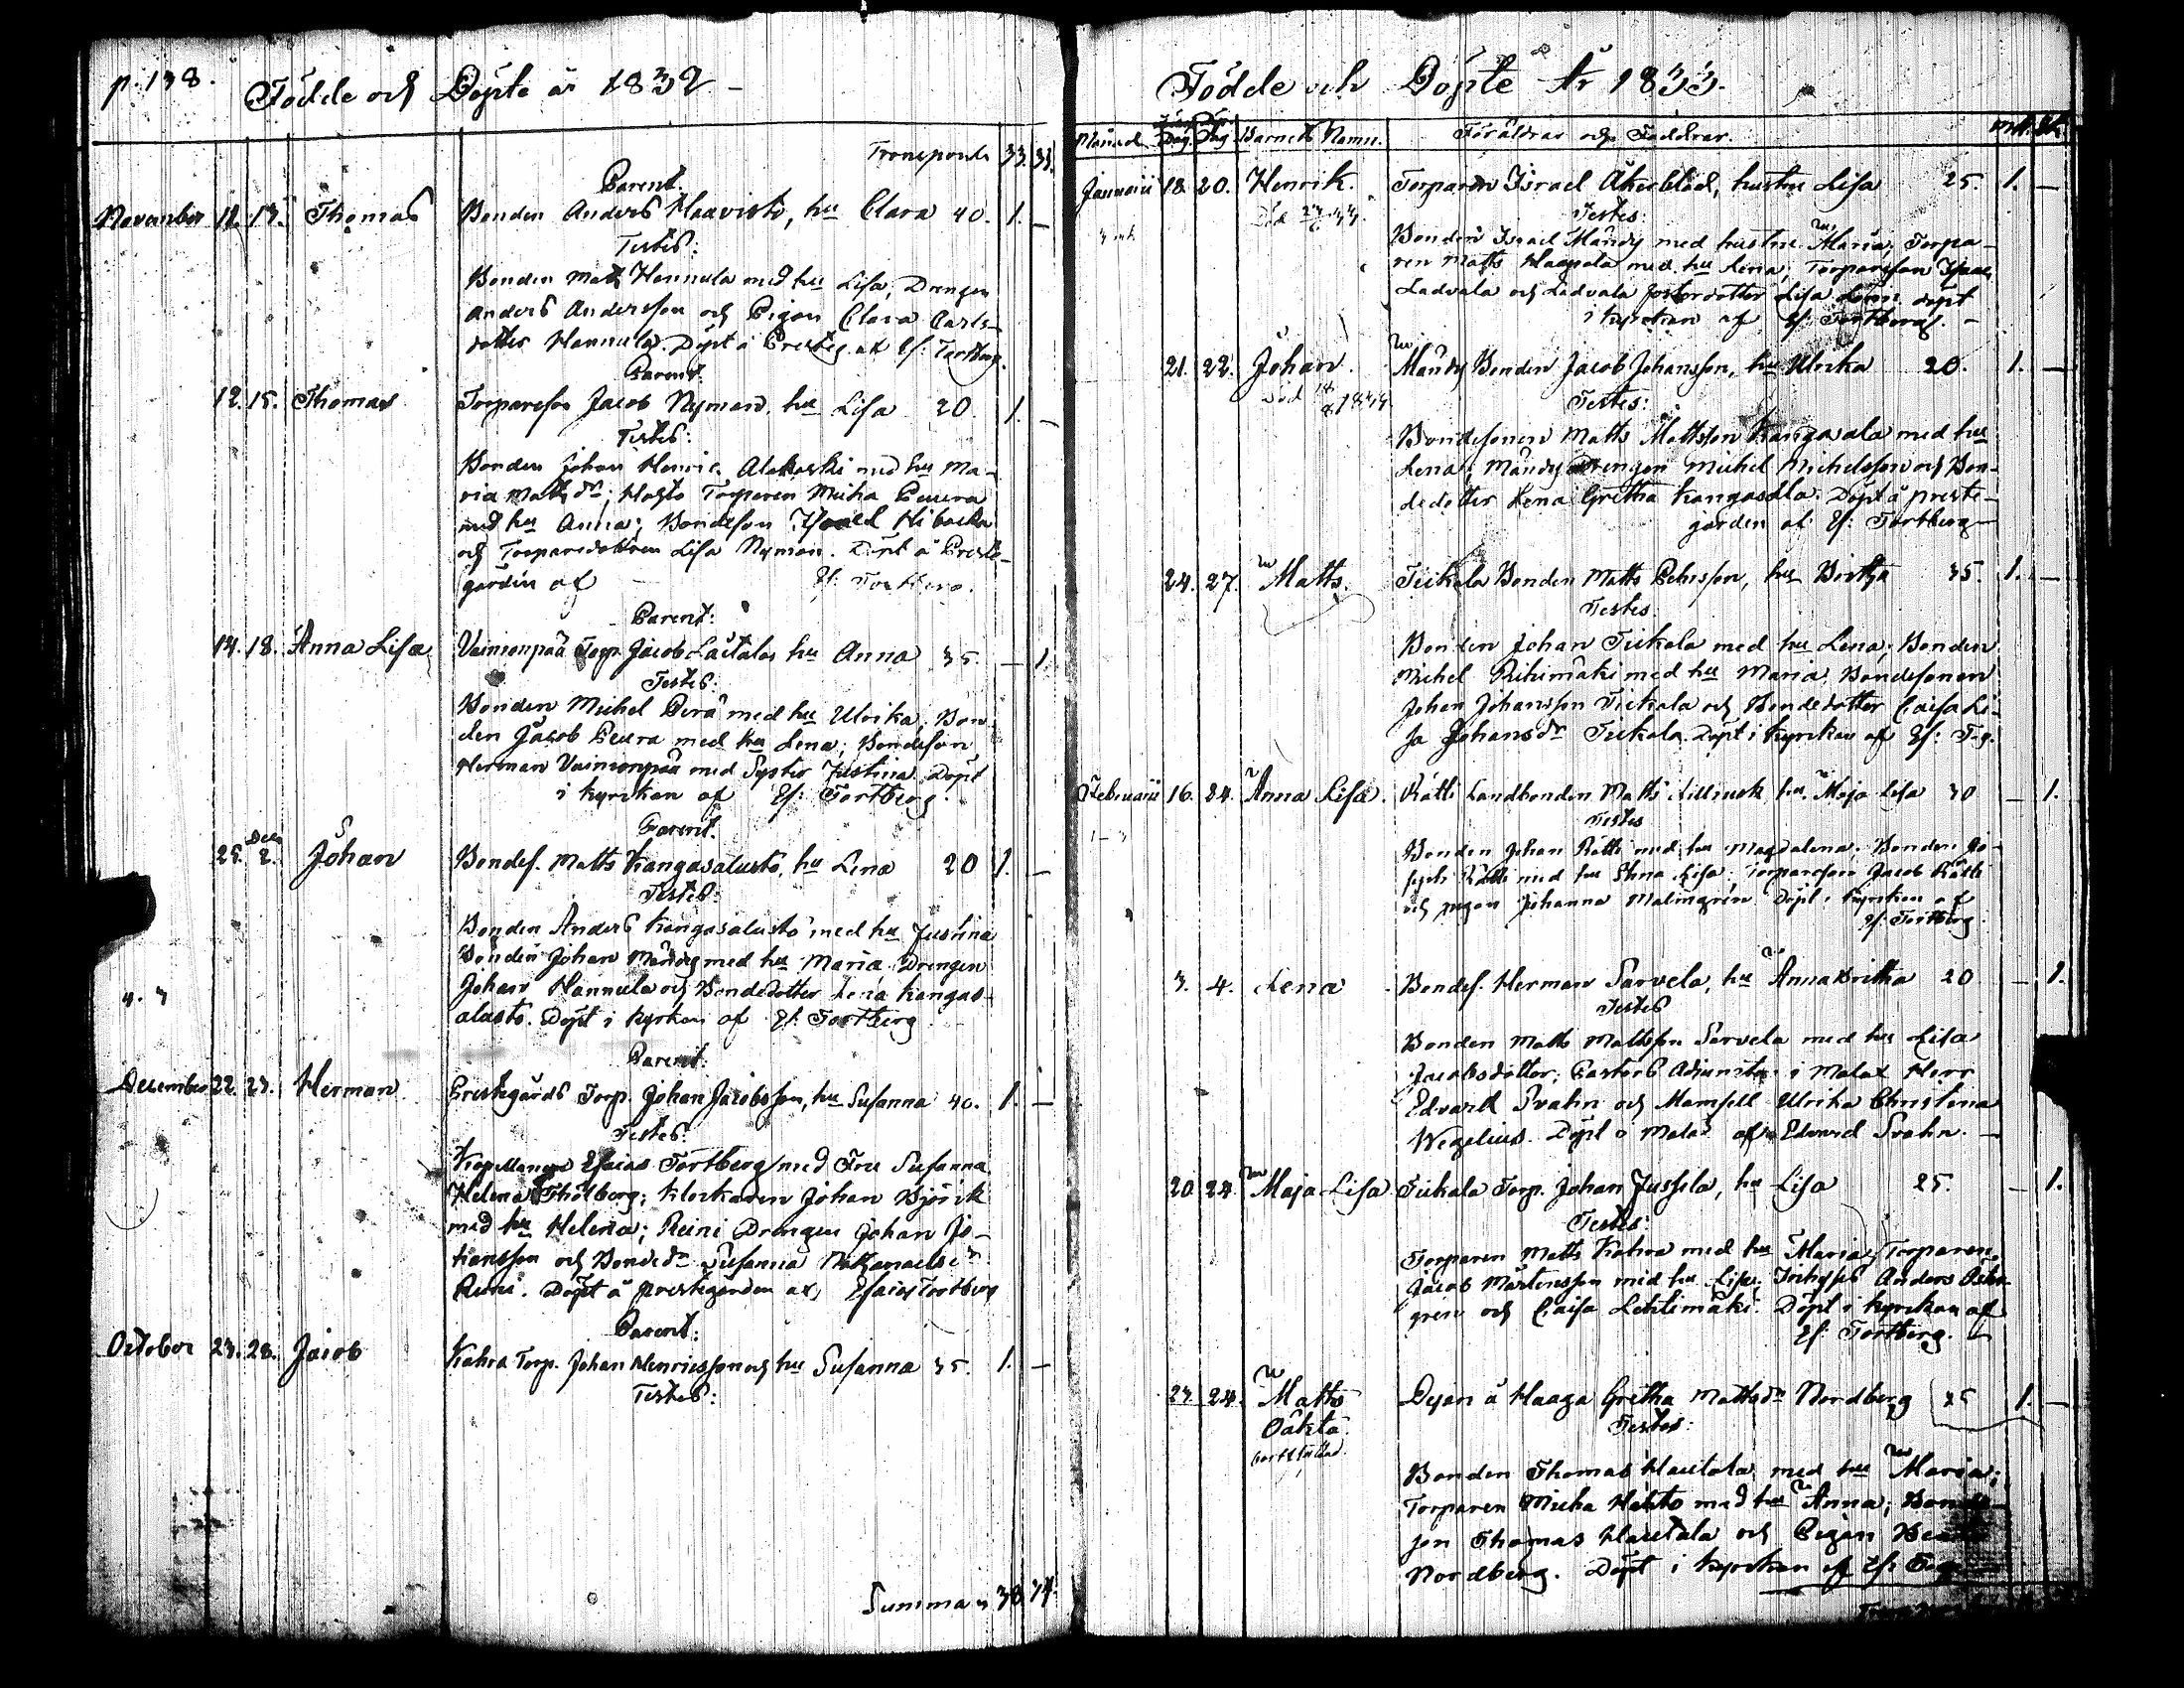 p. 138.
Födde och Döpte år 1832
Transport 33. 33.
Parent.
November 12. 13. Thomas Bonden Anders Haavisto, hu Clara 40. 1. —
Testes:
Bonden Matts Hannula med hu Lisa, Drengen
Anders Andersson och Pigan Clara Carls-
dotter Hannula. Döpt å Presteg. af Es: Tortberg.
Parent.
12. 15. Thomas Torparson Jacob Nyman, hu Lisa 20. 1. —
Testes:
Bonden Johan Henric Alakoski med hu Ma-
ria Matts dr; Torparen Micha Peura
med hu Anna; Bondeson
och Torparedottren Lisa Nyman. Döpt å Preste-
gården af Es: Tortberg.
Parent:
14. 18. Anna Lisa Vainionpää Torp. Jacob hu Anna 35. — 1.
Testes:
Bonden Michel Perä med hu Ulrika. Bon-
den Jacob Peura med hu Lena; Bondeson
Herman Vainionpää med Syster Justina. Döpt
i kyrckan af Es: Tortberg.
Parent.
25. Decb 2. Johan Bondes. Matts Kangasalusto, hu Lena 20 1. —
Testes:
Bonden Anders Kangasalusto med hu Justina
Bonden Johan Mändy med hu Maria Drengen
Johan Hannula och Bondedotter Lena Kangas-
alusto. Döpt i kyrkan af Es: Tortberg
Parent:
December 22. 23. Herman Prestegårds Torp. Johan Jacobsson, hu Susanna 40. 1. —
Testes:
Esaias Tortberg med Fru Susanna
Helena; Klockaren Johan Björck
med hu Helena; Reini Drengen Johan Jo-
hansson och Bonded r Susanna Nathanaels dr
Reini. Döpt å prestegården af Esaias Tortberg
Parent:
October 23. 28. Jacob Kahra Torp. Johan Henricsson och hu Susanna 35. 1. —
Testes:
Summa 38 34.
Födde och Döpte År 1833.
Månad Dag. Dag Barnets Namn. Föräldrar och Faddrar. Mk. Qk.
Januarii 18. 20. Henrik. Torparen Israel Åkerblad, hustru Lisa 25. 1. —
Testes:
Bonden Israel Mändy med hustru Maria, Torpa-
ren Matts Haapala med hu Lena; Torparson Isaac
Ladvala och Ladvala fosterdotter Lisa döpt
i kyrckan af Es: Tortberg. —
21. 22. Johan. Mändy Bonden Jacob Johansson, hu Ulrika 20. 1. —
Testes:
Bondesonen Matts Mattsson Kangasala med hu
Lena; Mändy Drengen Michel Michelsson och Bon-
dedotter Lena Gretha Kangasala. Döpt å preste-
gården af Es: Tortberg —
24. 27. Matts. Tiekala Bonden Matts Pehrsson, hu Britha 35. 1. —
Testes
Bonden Johan Tiekala med hu Lena; Bonden
Michel Rihimäki med hu Maria. Bondesonen
Johan Johansson Tiekala och Bondedotter Caisa Li-
sa Johans dr Tiekala. Döpt i kyrckan af Es: T-g.
Februarii 16. 24. Anna Lisa. Rätti Landbonden Matts hu. Maja Lisa 30 — 1.
Testes
Bonden Johan Rätti med hu Magdalena; Bonden Jo-
seph Rätti med hu Stina Lisa; Torparson Jacob Rätti
och pigan Johanna Malmgren Döpt i kyrckan af
Es: Tortberg
3. 4. Lena Bondes. Herman Sarvela, hu Anna Britha 20 — 1.
Testes
Bonden Matts Mattsson Sarvela med hu Lisa
Jacobsdotter; Pastors Adjuncten i Malax Herr
Edvard Svahn och Mamsell Ulrika Christina
Wegelius. Döpt i Malax af Edvard Svahn. —
20 24. Maja Lisa Tiekala Torp. Johan Jussila, hu Lisa 25. — 1.
Testes:
Torparen Matts Kahra med hu Maria, Torparen
Jacob Mårtensson med hu Lisa; Anders Öster-
gren och Caisa Lehtimäki. Döpt i kyrckan af
Es: Tortberg. —
23. 24. Matts Dejan å Haaga Gretha Matts dr Nordberg 25 1. —
Oäkta Testes:
Bonden Thomas Hautala med hu Maria;
Torparen Micha Hahto med hu Anna; Bonde-
son Thomas Hautala och Pigan
Nordberg. Döpt i kyrckan af Es: